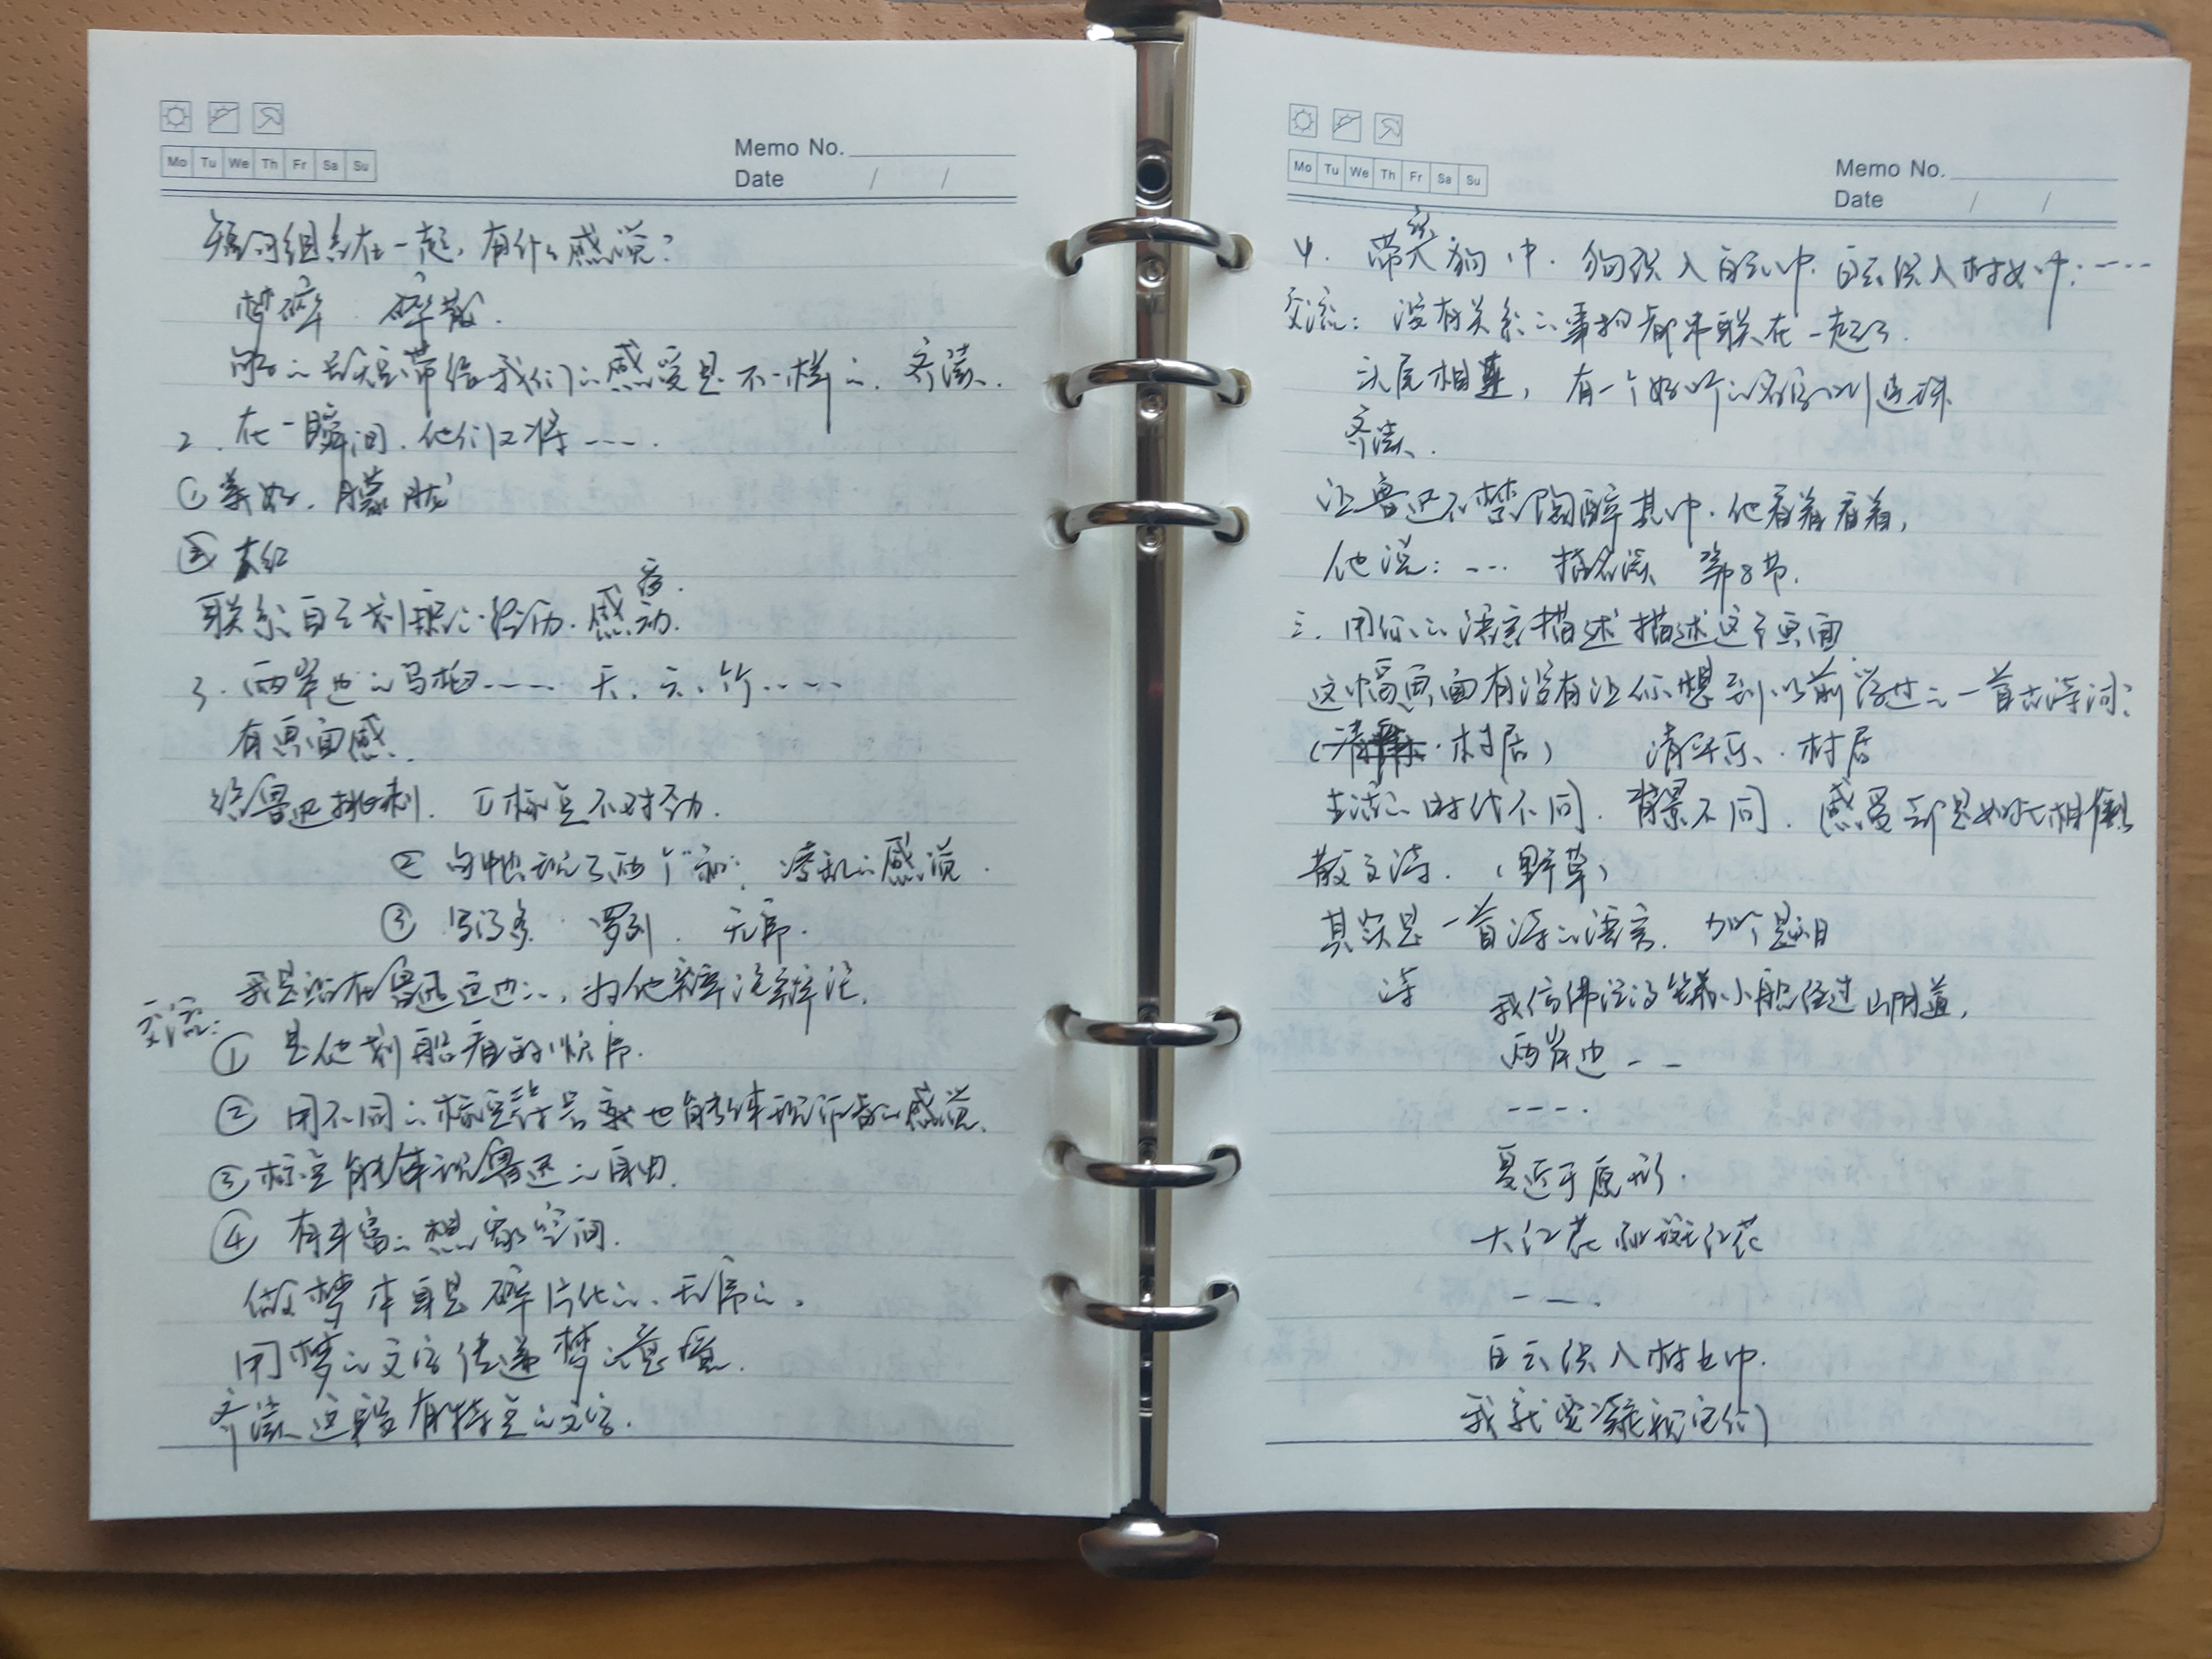 Mo Tu We Th Fr Sa Su
Memo No.
Date / /
短句组合在一起，有什么感觉？
梦碎 碎散.
的长短带给我们的感受是不一样的. 齐读.
2. 在一瞬间. 他们又将----.
① 美好. 朦胧
联系自己划船的经历. 感动.
3. 两岸边的乌桕---- 天、云、竹----
有画面感.
给鲁迅挑刺. ①标点不对劲.
② 句中出现了两个"和", 凌乱的感觉.
③ 写得多 罗列. 无序.
我是站在鲁迅这边的，为他辩论辩论.
交流:
① 是他划船看的顺序.
② 用不同的标点符号 也能够体现作者的感觉.
③ 标点能体现鲁迅的自由.
④ 有丰富的想象空间.
做梦本身是碎片化的、无序的.
用梦的文字传递梦的意蕴.
齐读这段有特点的文字.
Mo Tu We Th Fr Sa Su
Memo No.
Date / /
4. 带织入狗中. 狗织入白云中. 白云织入村女中.----
交流: 没有关系的事物都串联在一起了.
头尾相连，有一个好听的名字叫连珠
齐读.
让鲁迅不禁陶醉其中. 他看着看着,
他说: --- 指名读 第8节.
三. 用你的语言描述描述这个画面
这幅画面有没有让你想到以前学过的一首古诗词?
( ·村居) 清平乐·村居
生活的时代不同. 背景不同. 感受却是如此相似
散文诗. (野草)
其实是一首诗的语言. 加个题目
诗 我仿佛记得坐小船经过山阴道,
两岸边 --
----.
更近于原形.
大红花和斑红花
---.
白云织入村女中.
我就要凝视它们